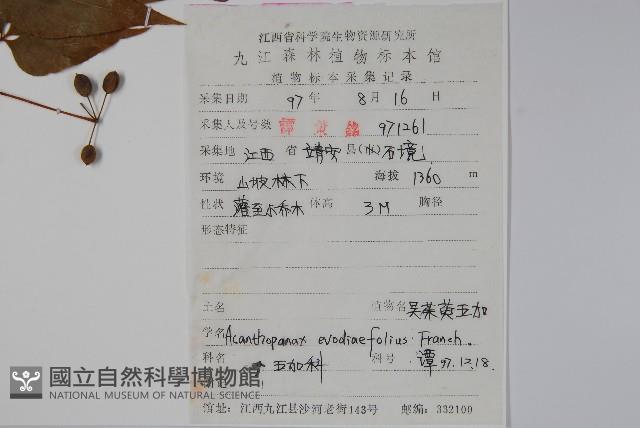 江西省科学院生物资源研究所
九江森林植物标本馆
植物标本采集记录
采集日期 97年 8月16日
采集人及号数 譚 971261
采集地 江西省 靖安县(市)石境
环境 山坡林下 海拔 1360 m
性状 至小乔木 体高 3M 胸径
形态特征
土名 植物名 吴茱萸五加
学名 Acanthopanax evodiaefolius Franch.
科名 五加科 科号 谭 97.12.18.
國立自然科學博物館
NATIONAL MUSEUM OF NATURAL SCIENCE
馆址:江西九江县沙河老街143号 邮编:332100